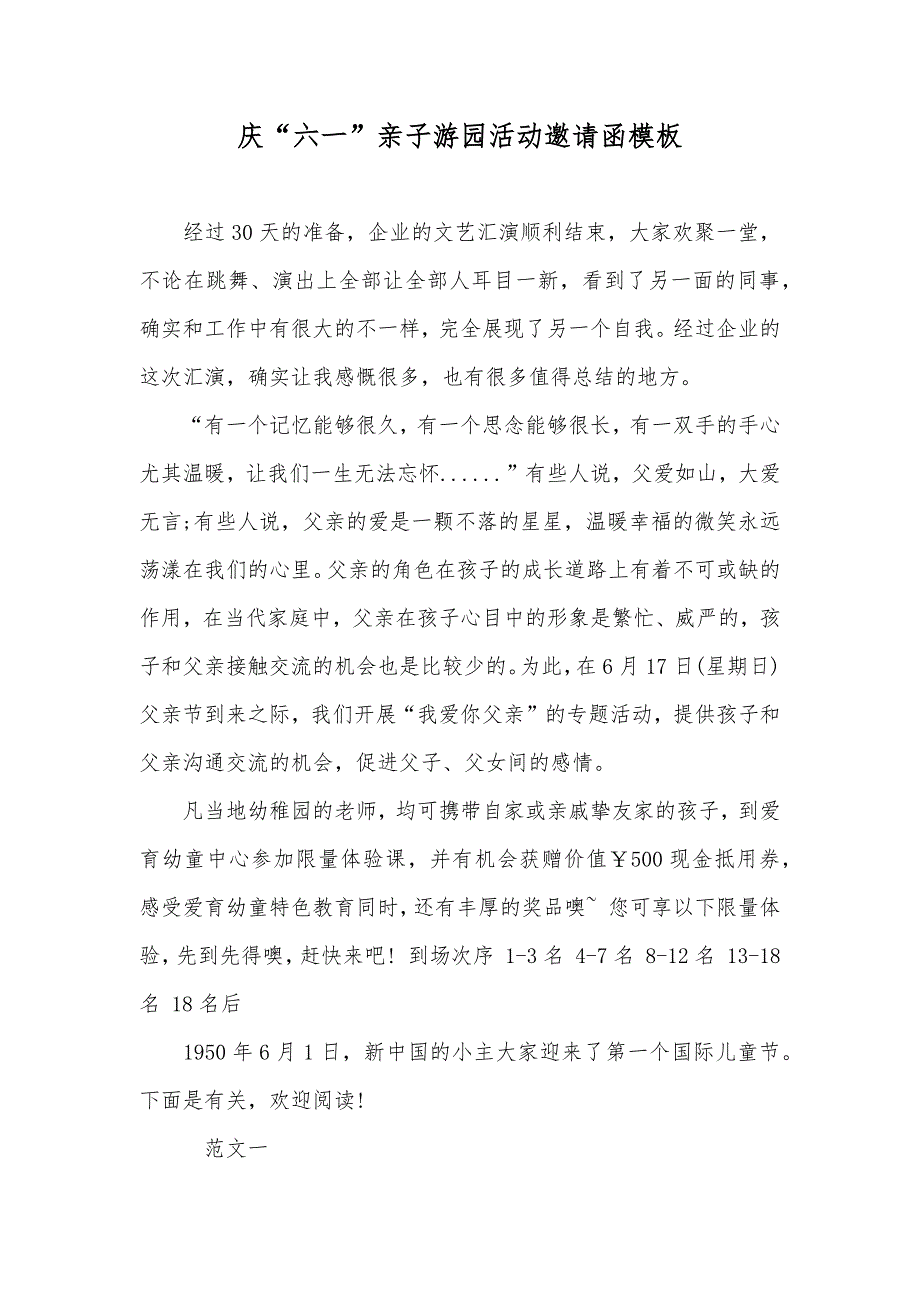 庆“六一”亲子游园活动邀请函模板
经过 30 天的准备，企业的文艺汇演顺利结束，大家欢聚一堂，
不论在跳舞、演出上全部让全部人耳目一新，看到了另一面的同事，
确实和工作中有很大的不一样，完全展现了另一个自我。经过企业的
这次汇演，确实让我感慨很多，也有很多值得总结的地方。
“有一个记忆能够很久，有一个思念能够很长，有一双手的手心
尤其温暖，让我们一生无法忘怀......”有些人说，父爱如山，大爱
无言;有些人说，父亲的爱是一颗不落的星星，温暖幸福的微笑永远
荡漾在我们的心里。父亲的角色在孩子的成长道路上有着不可或缺的
作用，在当代家庭中，父亲在孩子心目中的形象是繁忙、威严的，孩
子和父亲接触交流的机会也是比较少的。为此，在 6 月 17 日(星期日)
父亲节到来之际，我们开展“我爱你父亲”的专题活动，提供孩子和
父亲沟通交流的机会，促进父子、父女间的感情。
凡当地幼稚园的老师，均可携带自家或亲戚挚友家的孩子，到爱
育幼童中心参加限量体验课，并有机会获赠价值￥500 现金抵用券，
感受爱育幼童特色教育同时，还有丰厚的奖品噢~ 您可享以下限量体
验，先到先得噢，赶快来吧! 到场次序 1-3 名 4-7 名 8-12 名 13-18
名 18 名后
1950 年 6 月 1 日，新中国的小主大家迎来了第一个国际儿童节。
下面是有关，欢迎阅读!
范文一